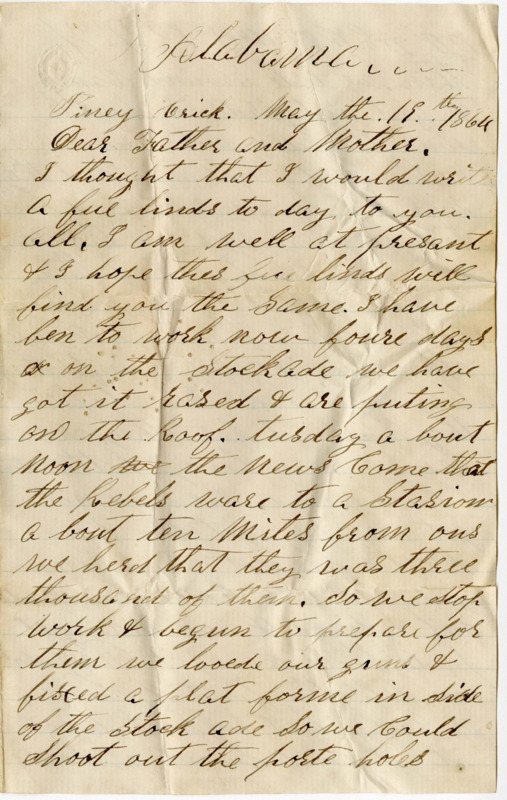 Alabama
Piney Crick. May the. 19.th 1864
Dear Father and Mother.
I thought that I would write
a fue linds to day to you.
all. I am well at presant
& I hope thes fue linds will
find you the same. I have
ben to work now foure days
on the stockade we have
got it rased & are puting
on the Roof. tusday a bout
noon the news Come that
the Rebels ware to a Stasion
a bout ten Miles from ous
we herd that they was three
thousand of them. So we stop
work & begun to prepare for
them we looede our guns &
fixed a plat forme in side
of the stock ade So we Could
Shoot out the porte holes